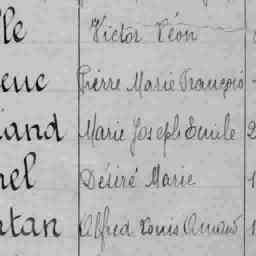 lle Victor Léon
euc Pierre Marie François
iand Marie Joseph Emile 2
nel Désiré Marie 1
ntan Alfred Louis Armand 1